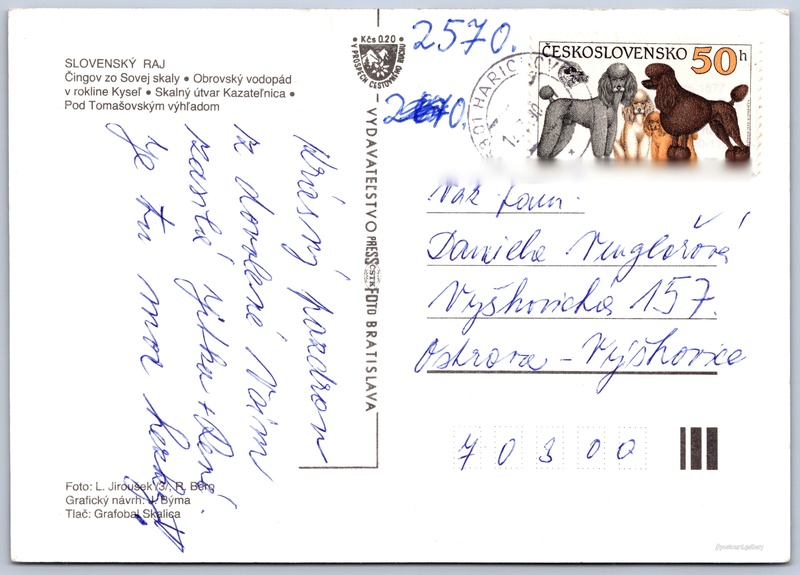 SLOVENSKÝ RAJ
Čingov zo Sovej skaly • Obrovský vodopád
v rokline Kyseľ • Skalný útvar Kazateľnica •
Pod Tomašovským výhľadom
Krásný pozdrav
z dovolené Vám
zasílá Jitka +
Je tu moc hezky!
Foto: L. Jiroušek /3/, R. Berg
Grafický návrh: J. Býma
Tlač: Grafobal Skalica
• Kčs 0.20 •
V PROSPECH CESTOVNÉHO RUCHU
VYDAVATEĽSTVO PRESSFOTO BRATISLAVA
ČSTK
2570.
ČESKOSLOVENSKO 50h
Važ. pani
Daniela Vinglářová
Výškovická 157.
Ostrava - Výškovice
70300
//postcard.gallery